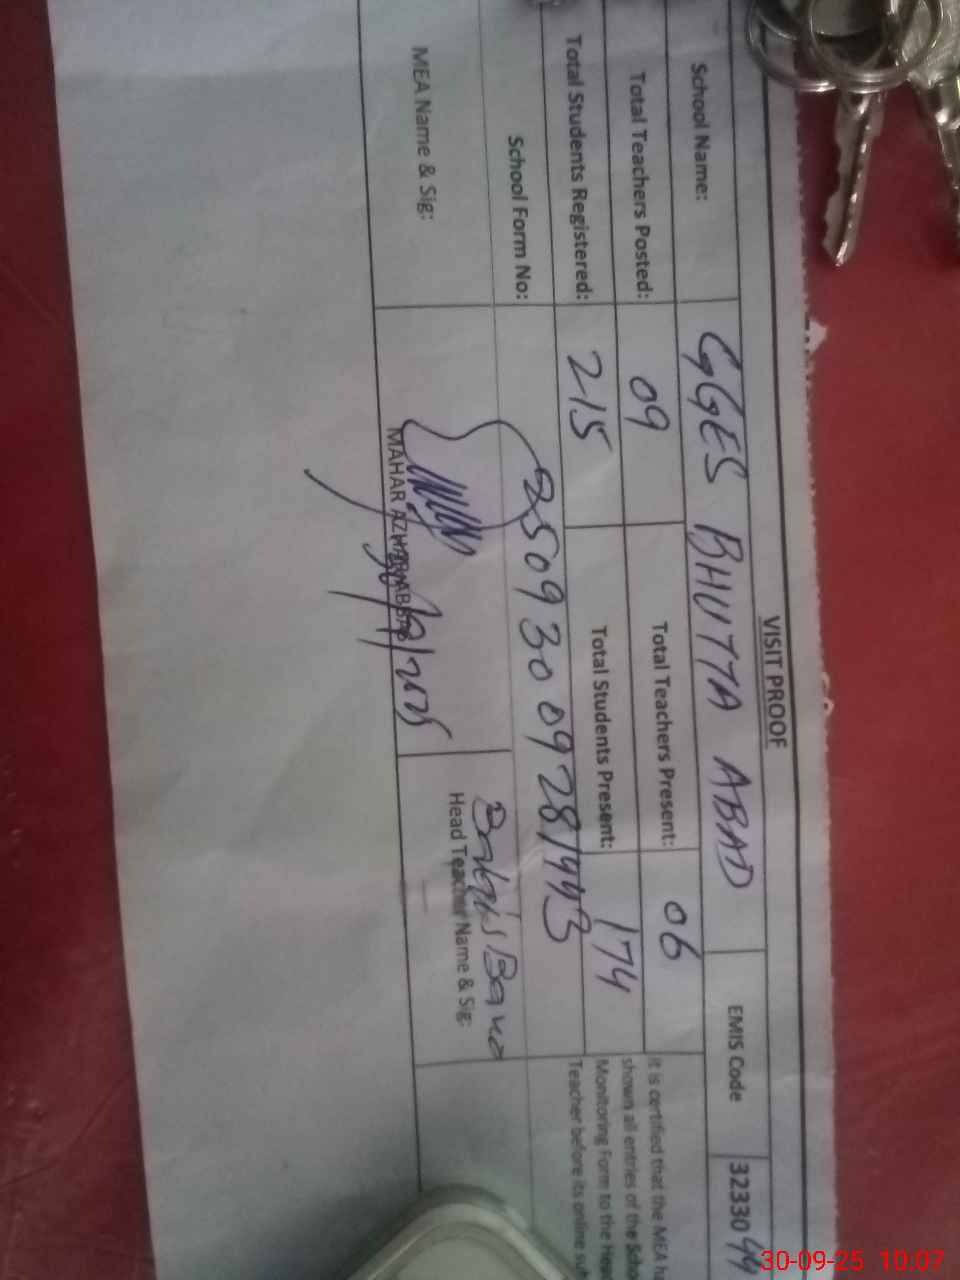 VISIT PROOF
School Name: GGES BHUTTA ABAD EMIS Code 32330 44
Total Teachers Posted: 09 Total Teachers Present: 06
Total Students Registered: 215 Total Students Present: 174
School Form No: 25093009281443
MEA Name & Sig: MAHAR AZHAR ABBAS
Head Teacher Name & Sig: Bano
It is certified that the MEA
shown all entries of the
Monitoring Form to the
Teacher before its online
30-09-25 10:07